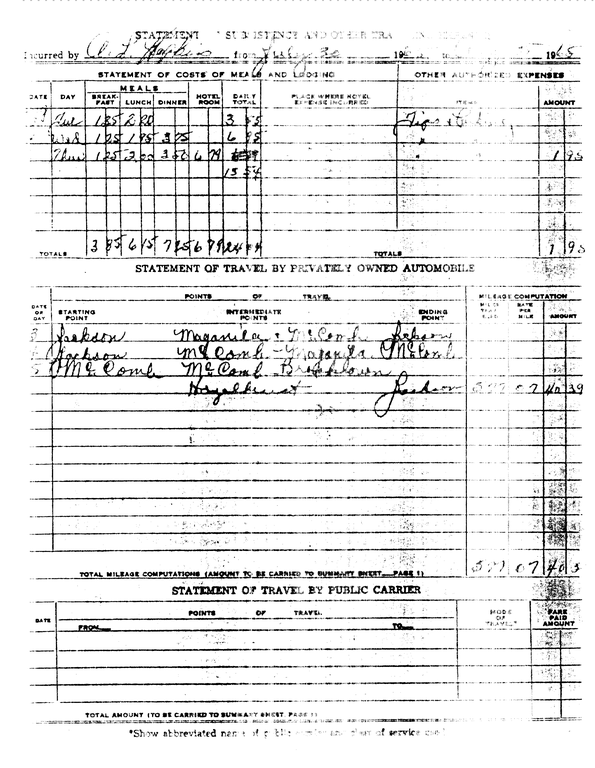 STATEMENT SUBSISTENCY AND OTHER TRA
Incurred by A. L. Hopkins from 196 1965
STATEMENT OF COSTS OF MEALS AND LODGING OTHER AUTHORIZED EXPENSES
MEALS
DATE DAY BREAKFAST LUNCH DINNER HOTEL ROOM DAILY TOTAL PLACE WHERE HOTEL EXPENSE INCURRED ITEMS AMOUNT
Tue 1 35 2 20 3 55 Tips
Wed 1 25 1 95 3 75 6 95
Thur 1 25 2 00 3 50 6 79 1 95
15 54
TOTALS 3 85 6 15 7 25 6 79 24 04 TOTALS 1 95
STATEMENT OF TRAVEL BY PRIVATELY OWNED AUTOMOBILE
POINTS OF TRAVEL MILEAGE COMPUTATION
DATE OR DAY STARTING POINT INTERMEDIATE POINTS ENDING POINT RATE PER MILE AMOUNT
3 Jackson Maganila & McComb Jackson
Jackson McComb - Maganila McComb
5 McComb McComb
Hazelhurst Jackson 577 07 40 39
TOTAL MILEAGE COMPUTATIONS (AMOUNT TO BE CARRIED TO SUMMARY SHEET PAGE 1) 577 07 40 3
STATEMENT OF TRAVEL BY PUBLIC CARRIER
DATE POINTS OF TRAVEL MODE OF TRAVEL* FARE PAID AMOUNT
FROM TO
TOTAL AMOUNT (TO BE CARRIED TO SUMMARY SHEET PAGE 1)
*Show abbreviated name of public carrier and class of service used